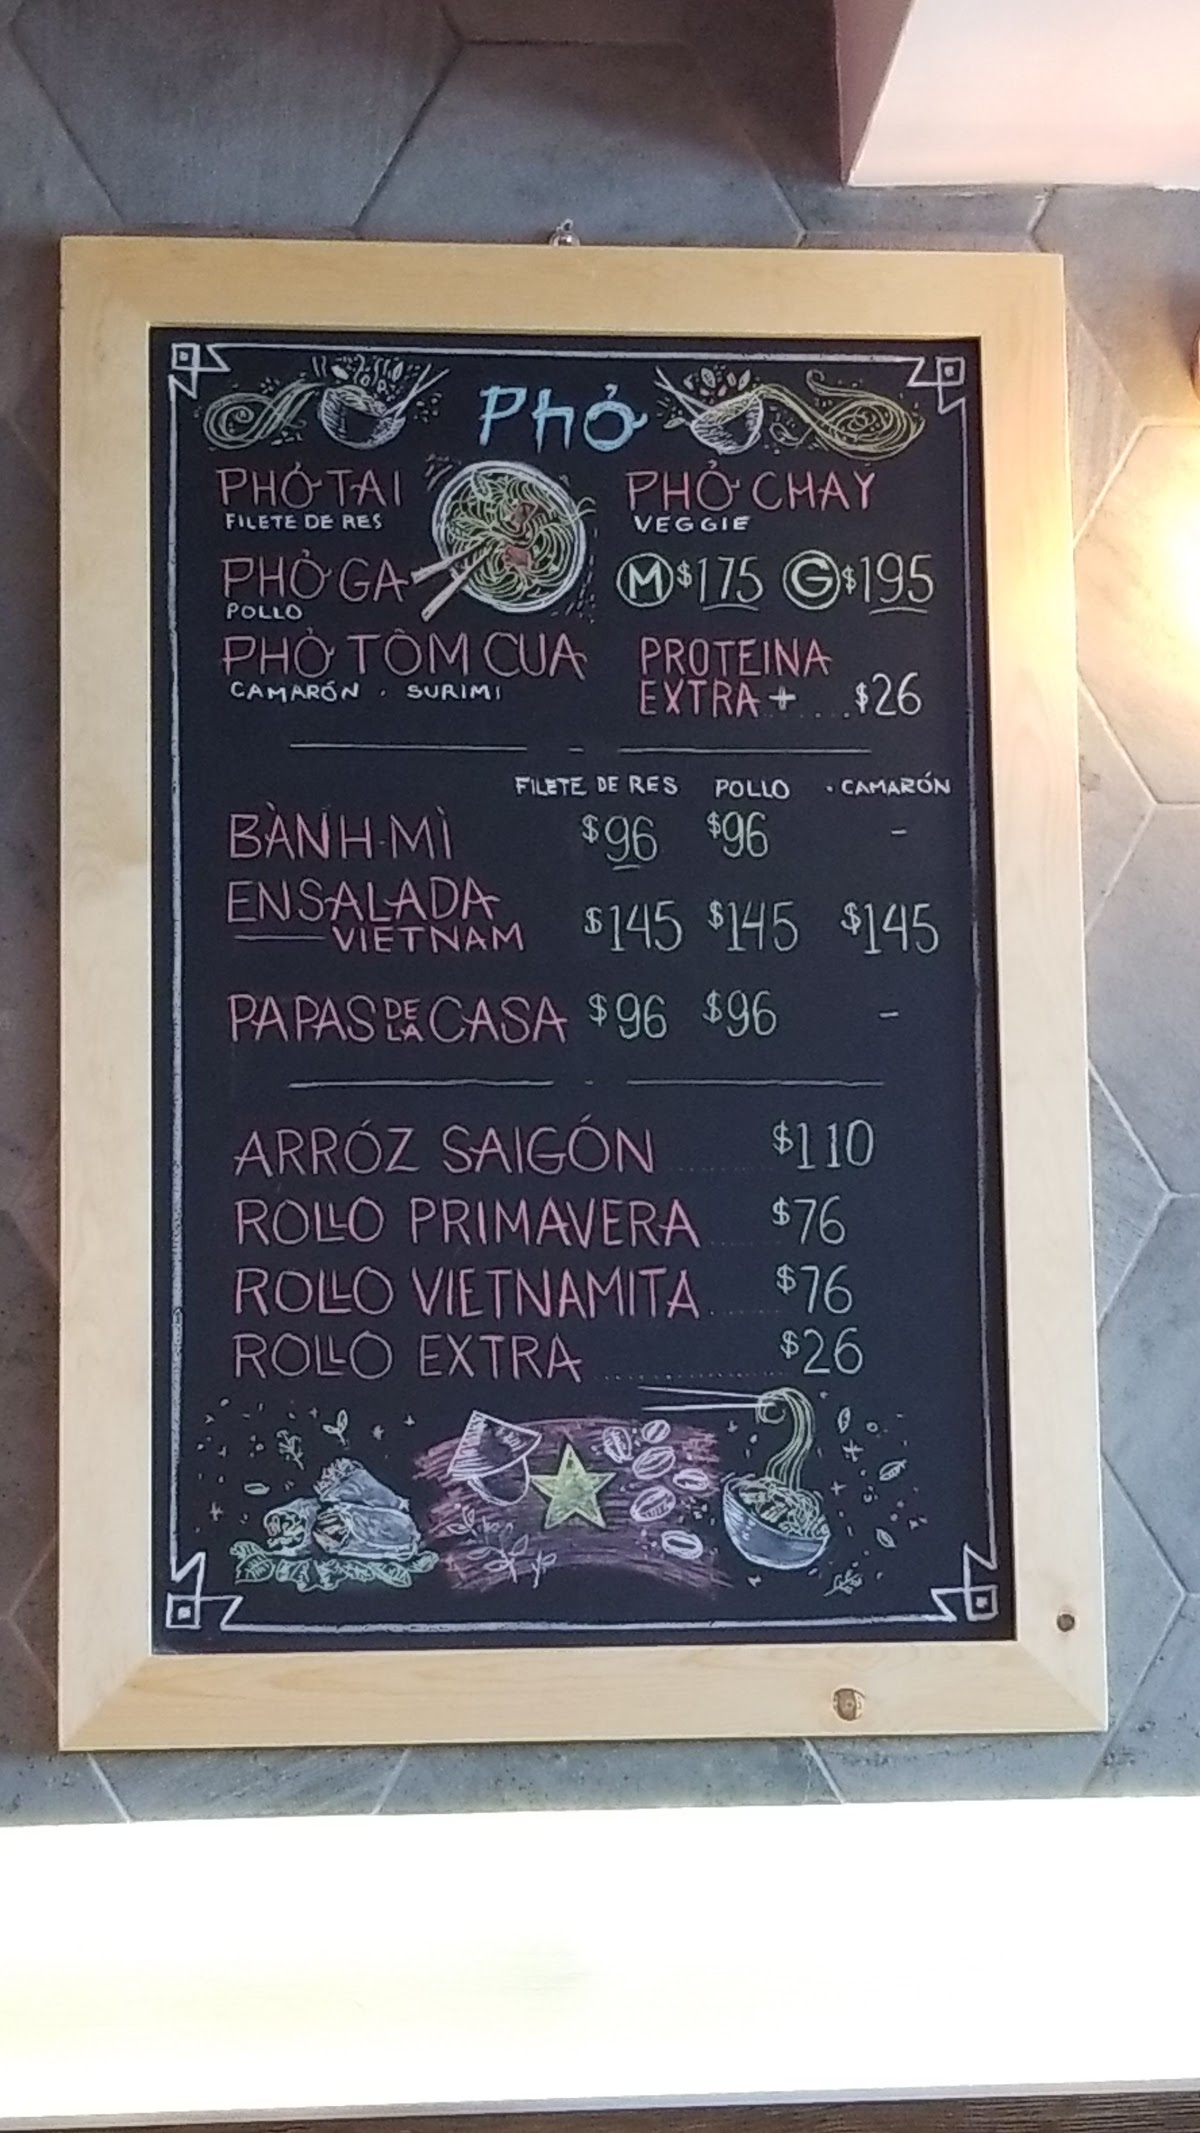 Phở
PHỞ TAI
FILETE DE RES
PHỞ GA
POLLO
PHỞ TÔM CUA
CAMARÓN · SURIMI
PHỞ CHAY
VEGGIE
M $175 G $195
PROTEINA
EXTRA + .... $26
FILETE DE RES POLLO · CAMARÓN
BÀNH·MÌ $96 $96 -
ENSALADA
VIETNAM $145 $145 $145
PAPAS DE LA CASA $96 $96 -
ARRÓZ SAIGÓN ........ $110
ROLLO PRIMAVERA ..... $76
ROLLO VIETNAMITA ...... $76
ROLLO EXTRA ............ $26